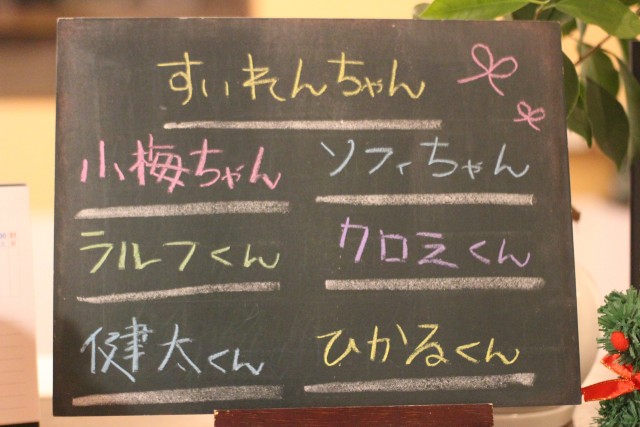 すいれんちゃん
小梅ちゃん ソフィちゃん
ラルフくん クロミくん
健太くん ひかるくん